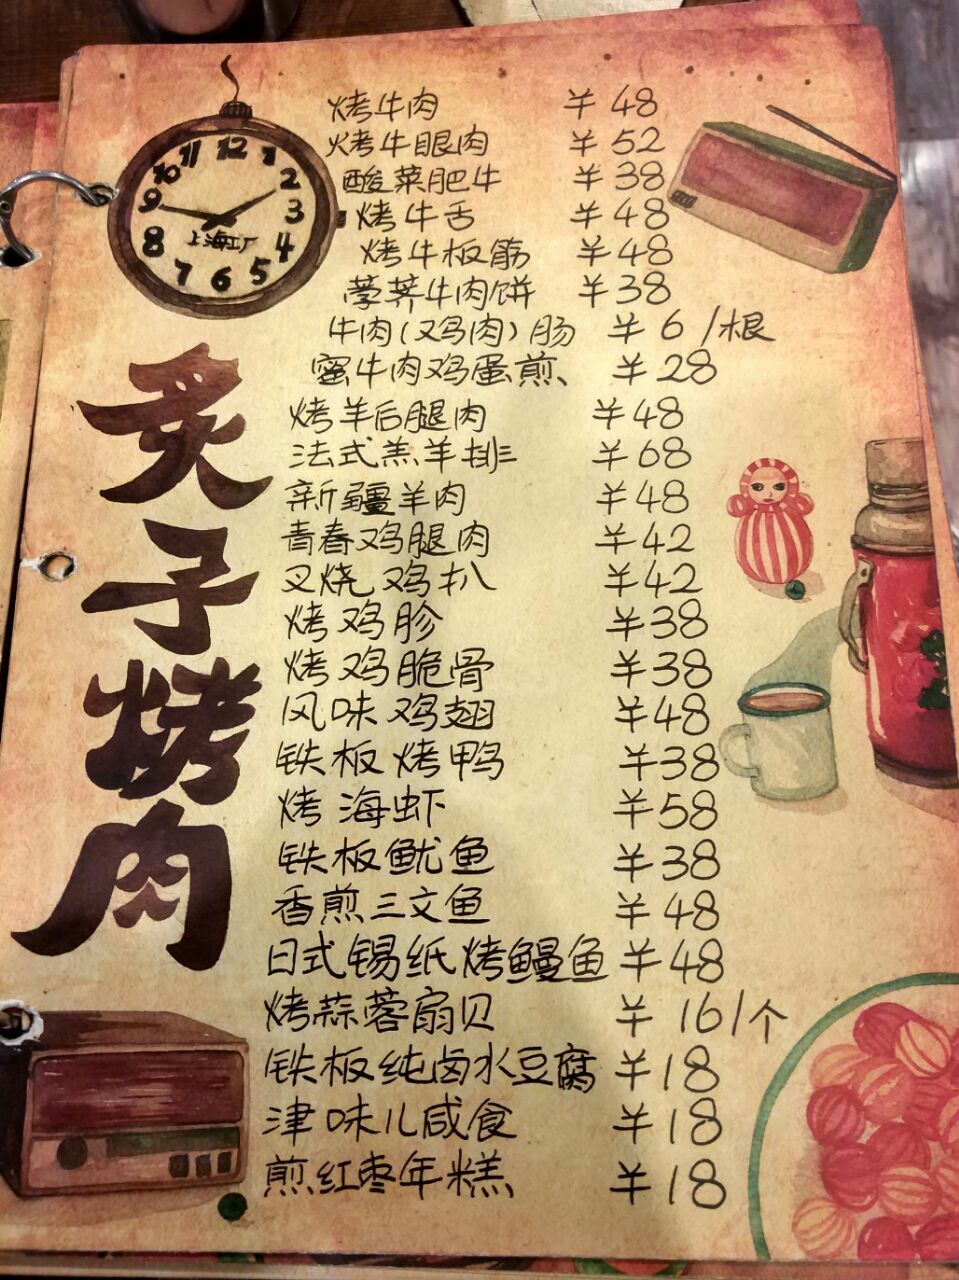 烤牛肉 ¥48
烤牛眼肉 ¥52
酸菜肥牛 ¥38
烤牛舌 ¥48
烤牛板筋 ¥48
荸荠牛肉饼 ¥38
牛肉(又鸡肉)肠 ¥6/根
蜜牛肉鸡蛋煎 ¥28
烤羊后腿肉 ¥48
法式羔羊排 ¥68
新疆羊肉 ¥48
青春鸡腿肉 ¥42
叉烧鸡扒 ¥42
烤鸡胗 ¥38
烤鸡脆骨 ¥38
风味鸡翅 ¥48
铁板烤鸭 ¥38
烤海虾 ¥58
铁板鱿鱼 ¥38
香煎三文鱼 ¥48
日式锡纸烤鳗鱼 ¥48
烤蒜蓉扇贝 ¥16/个
铁板纯卤水豆腐 ¥18
津味儿咸食 ¥18
煎红枣年糕 ¥18
炙子烤肉
11 12 1
10 2
9 3
8 4
7 6 5
上海工厂